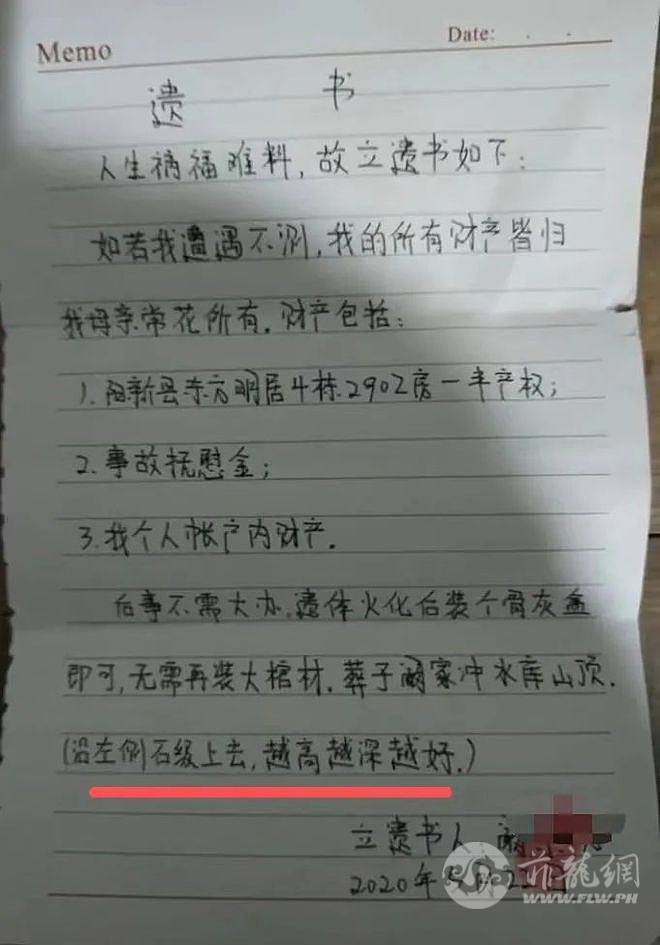 Memo
Date: . .
遗 书
人生祸福难料，故立遗书如下：
如若我遭遇不测，我的所有财产皆归
我母亲常花所有。财产包括：
1. 阳新县东方明居4栋2902房一半产权；
2. 事故抚慰金；
3. 我个人帐户内财产。
后事不需大办，遗体火化后装个骨灰盒
即可，无需再装大棺材。葬于阚家冲水库山顶。
(沿左侧石级上去，越高越深越好。)
立遗书人
2020年5月22日
菲龍網
WWW.FLW.PH